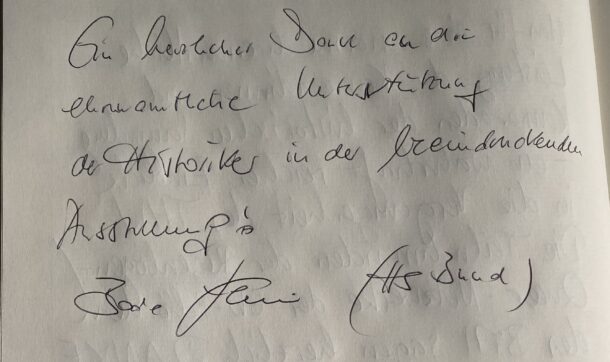 Ein herzlicher Dank an die
ehrenamtliche Unterstützung
der Historiker in der beeindruckenden
Ausstellung